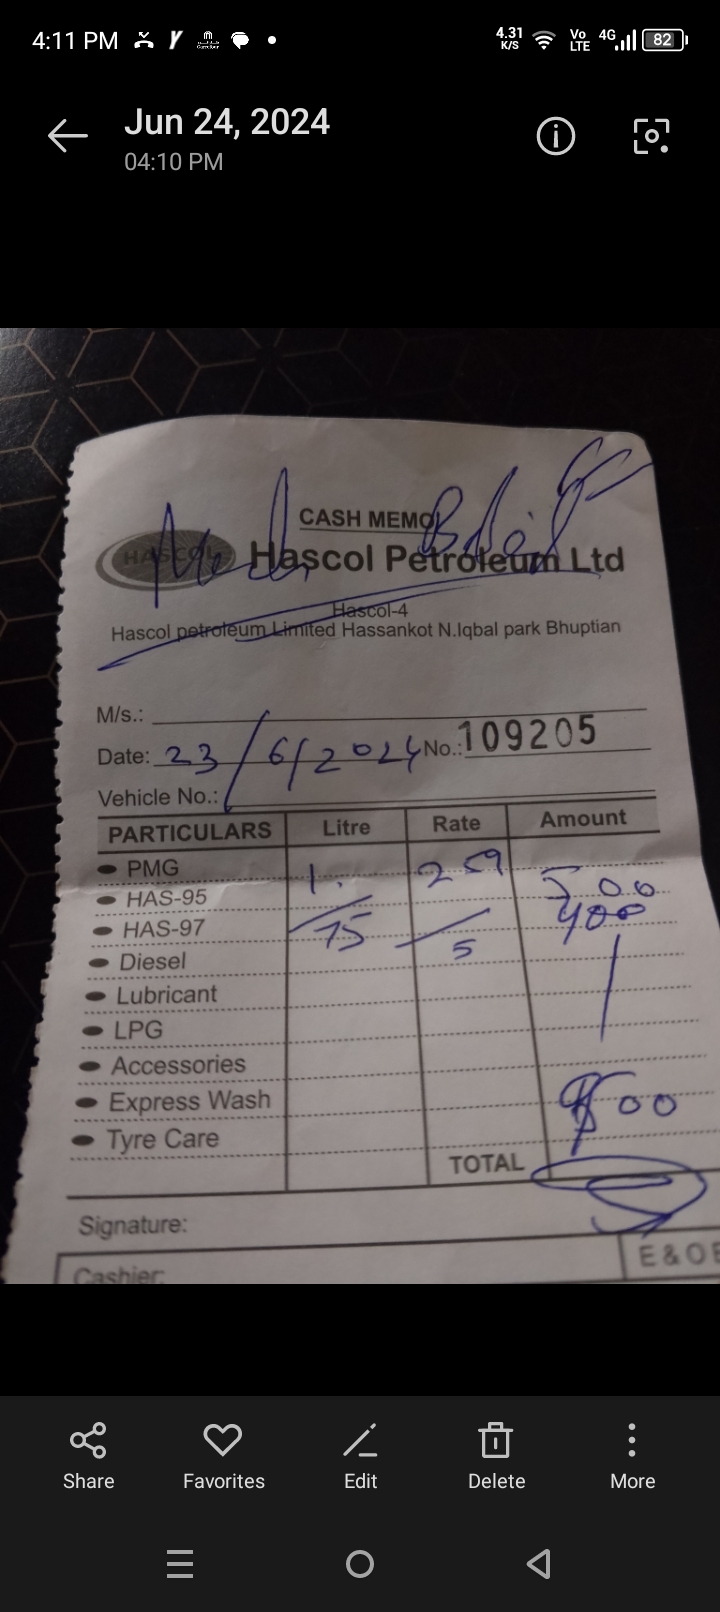 4:11 PM
4.31 K/S
Vo LTE
4G
82
Jun 24, 2024
04:10 PM
CASH MEMO
HASCOL
Hascol Petroleum Ltd
Hascol-4
Hascol petroleum Limited Hassankot N.Iqbal park Bhuptian
M/s.:
Date: 23/6/2024 No.: 109205
Vehicle No.:
PARTICULARS Litre Rate Amount
PMG 1. 259 500
HAS-95 400
HAS-97 75 5
Diesel
Lubricant
LPG
Accessories
Express Wash 00
Tyre Care
TOTAL
Signature:
Cashier:
E & OE
Share Favorites Edit Delete More